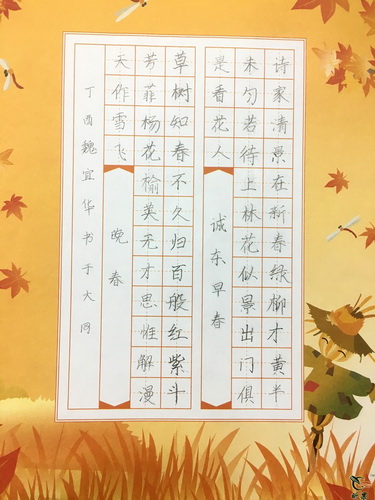 诗家清景在新春绿柳才黄半
未匀若待上林花似景出门俱
是香花人
诚东早春
草树知春不久归百般红紫斗
芳菲杨花榆荚无才思惟解漫
天作雪飞
晚春
丁酉魏宜华书于大同